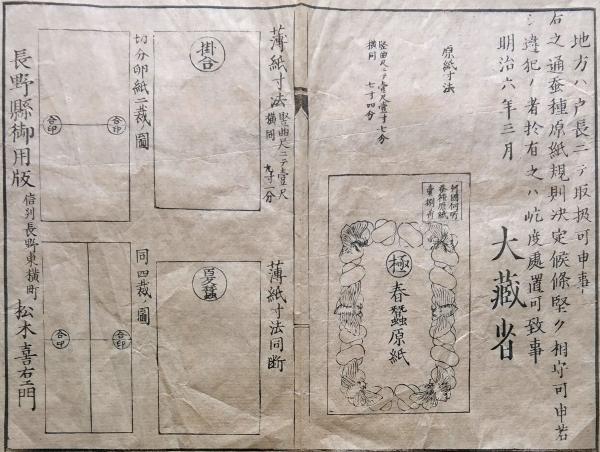 地方ハ戸長ニテ取扱可申事
右之通蚕種原紙規則決定候條堅ク相守可申若
シ違犯ノ者於有之ハ屹度處置可致事
明治六年三月
大藏省
原紙寸法
竪曲尺ニテ壹尺壹寸七分
横同 七寸四分
何國何町
蚕種原紙
極
春蠶原紙
薄紙寸法
竪曲尺ニテ壹尺
横同 九寸一分
掛合
薄紙寸法同断
夏蠶
切分印紙二裁圖
合印
合印
同四裁圖
合印
合印
長野縣御用版
信列長野東横町
松木喜右エ門